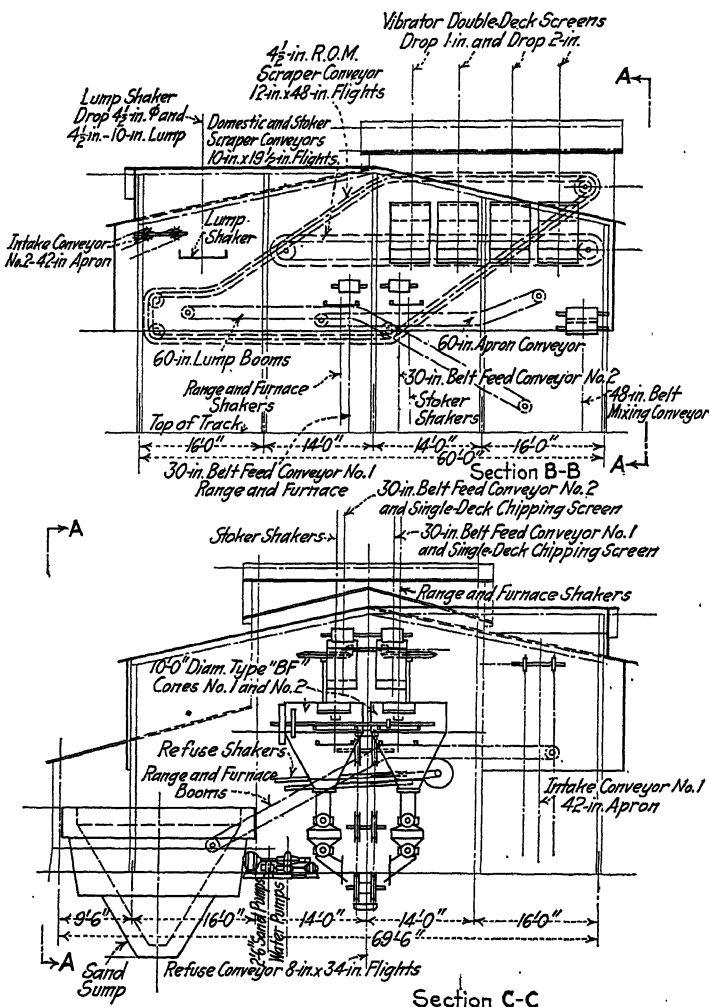 Vibrator Double-Deck Screens
Drop 1-in. and Drop 2-in.
4½-in. R.O.M.
Scraper Conveyor
12-in. x 48-in. Flights
A
Lump Shaker
Drop 4½-in. Φ and
4½-in.-10-in. Lump
Domestic and Stoker
Scraper Conveyors
10-in. x 19½-in. Flights
Intake Conveyor
No.2-42-in. Apron
Lump
Shaker
60-in. Lump Booms
60-in. Apron Conveyor
Range and Furnace
Shakers
30-in. Belt Feed Conveyor No. 2
Stoker
Shakers
48-in. Belt
Mixing Conveyor
Top of Track
16'-0" 14'-0" 14'-0" 16'-0"
60'-0"
30-in. Belt Feed Conveyor No. 1
Range and Furnace
Section B-B
A
A
30-in. Belt Feed Conveyor No. 2
and Single-Deck Chipping Screen
Stoker Shakers
30-in. Belt Feed Conveyor No. 1
and Single-Deck Chipping Screen
Range and Furnace Shakers
10'-0" Diam. Type "BF"
Cones No. 1 and No. 2
Refuse Shakers
Range and Furnace
Booms
Intake Conveyor No. 1
42-in. Apron
Sand Pumps
Water Pumps
9'-6" 16'-0" 14'-0" 14'-0" 16'-0"
69'-6"
A
Sand
Sump
Refuse Conveyor 8-in. x 34-in. Flights
Section C-C